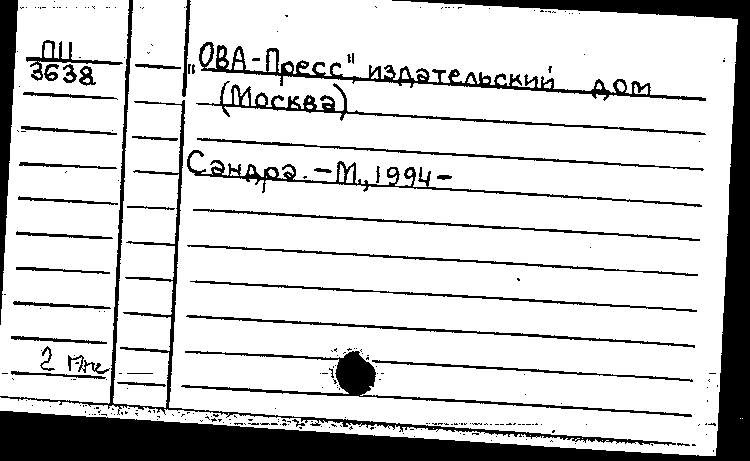 ПЦ
3638
"ОВА-Пресс", издательский дом
(Москва)
Сандра. -М., 1994-
2